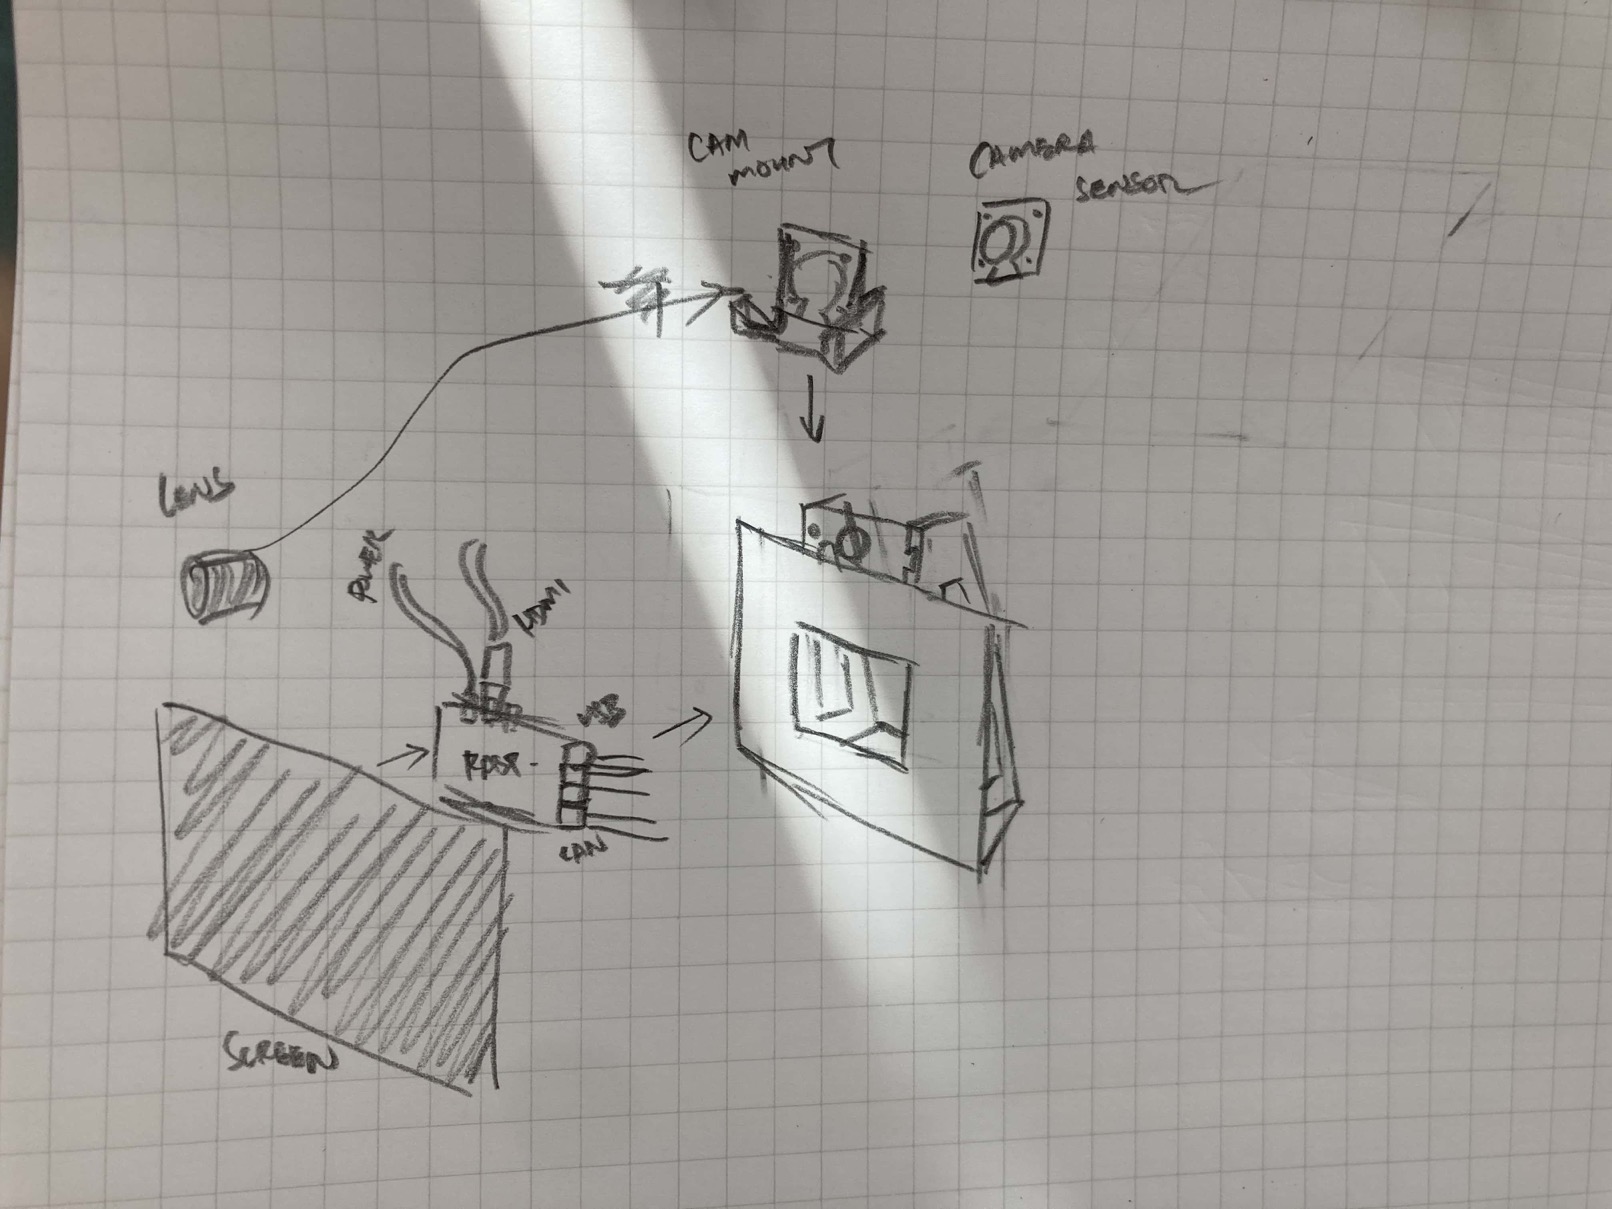 CAM
MOUNT
CAMERA
SENSOR
LENS
POWER
HDMI
USB
LAN
SCREEN